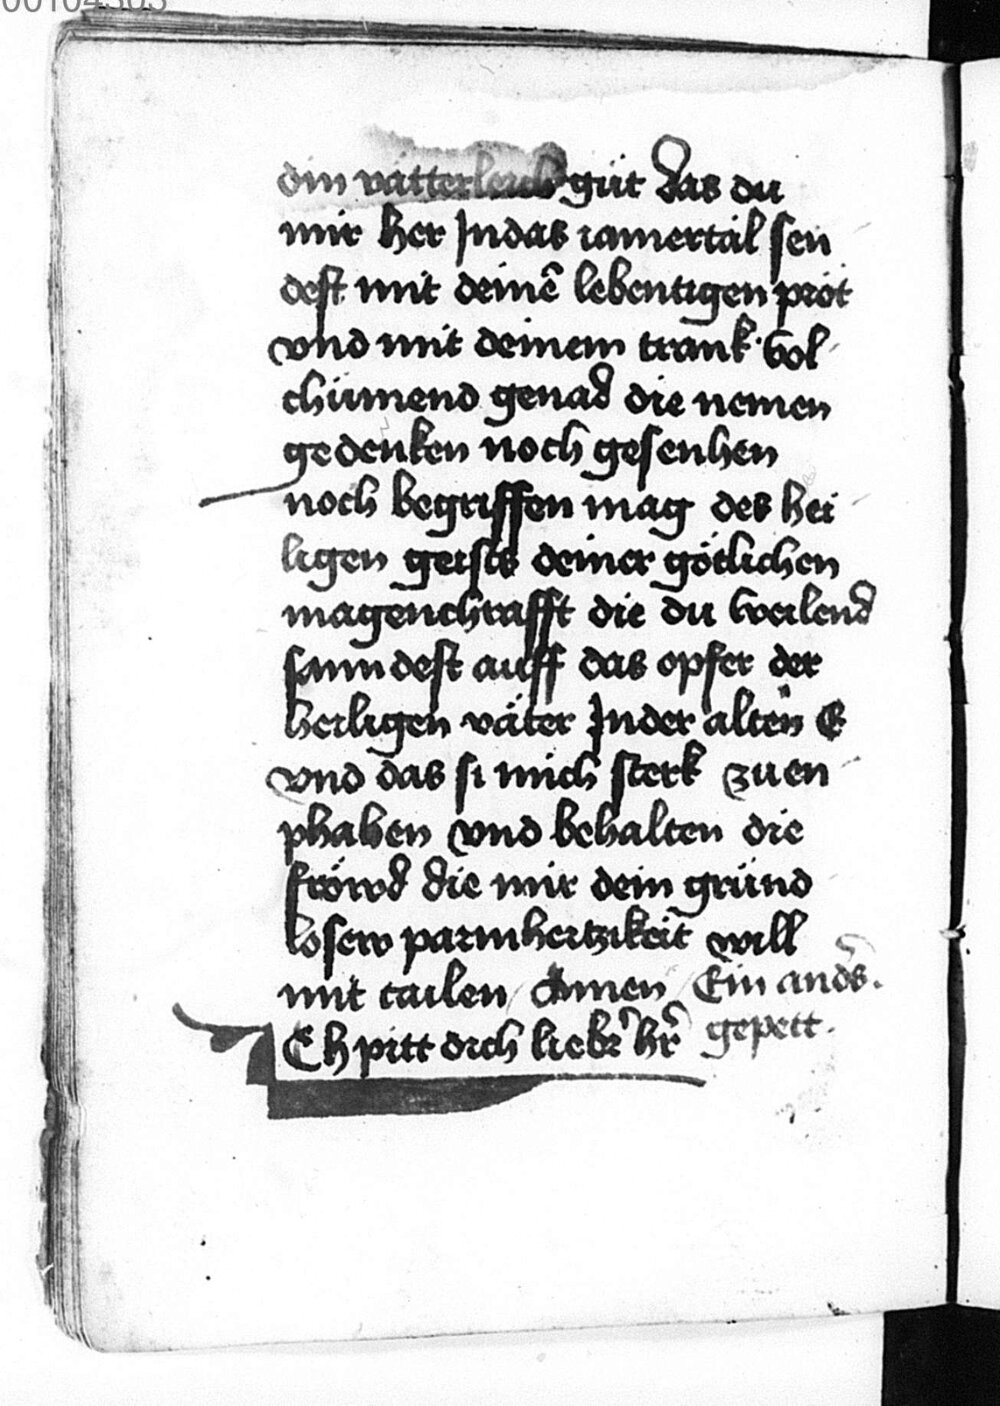 din vätterleich güt Das du
mir her Jn das iamertal sen
dest mit deinē lebentigen prot
vnd mit deinem trank vol
chümend genad die nemen
gedenken noch gesenhen
noch begriffen mag des hei
ligen geists deiner götlichen
magenchrafft die du weilend
sanndest auff das opfer der
heiligen väter Jn der alten E
vnd das si mich sterk zu en
phahen vnd behalten die
fröwd die mir dein gründ
losew parmhertzikeit will
mit tailen Amen Ein anders.
Ch pitt dich liebr hr gepett.